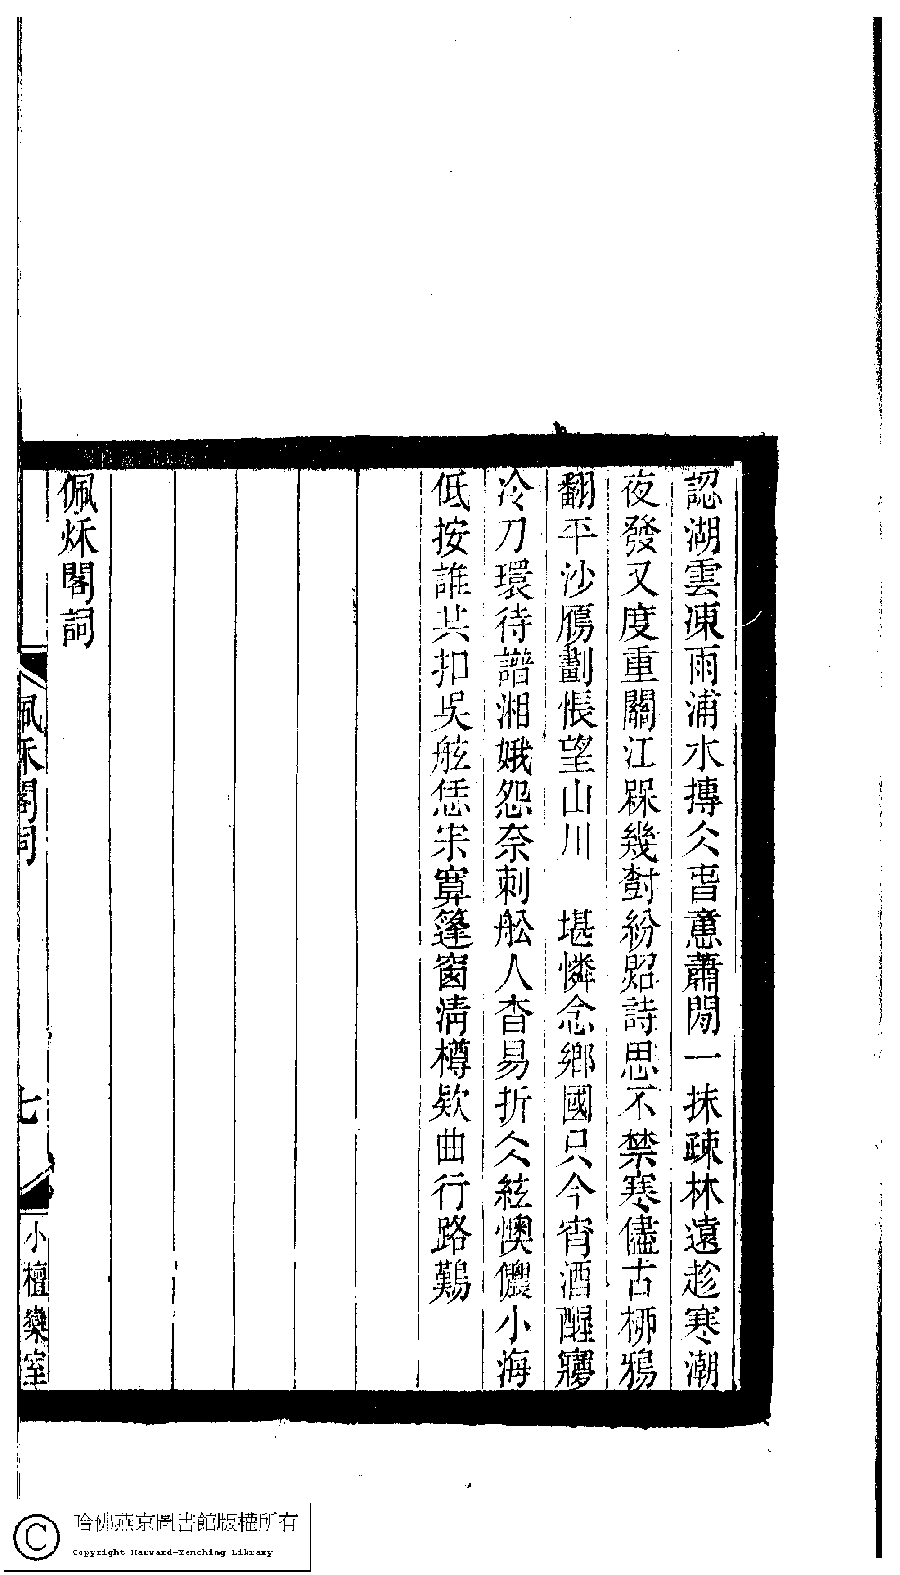 認湖雲凍雨浦水摶仌旹意蕭閒一抹疎林遠趁寒潮
夜發又度重關江槑幾尌紛照詩思不禁寒儘古桺鴉
翻平沙鴈劃悵望山川　堪憐念鄉國只今宵酒醒㝱
冷刀環待譜湘娥怨奈刺舩人杳易折仌絃懊儂小海
低按誰共扣吳舷恁宋寞篷窗淸樽欵曲行路難
佩秌閣詞
佩秌閣詞
七
小檀欒室
哈佛燕京圖書館版權所有
Copyright Harvard-Yenching Library